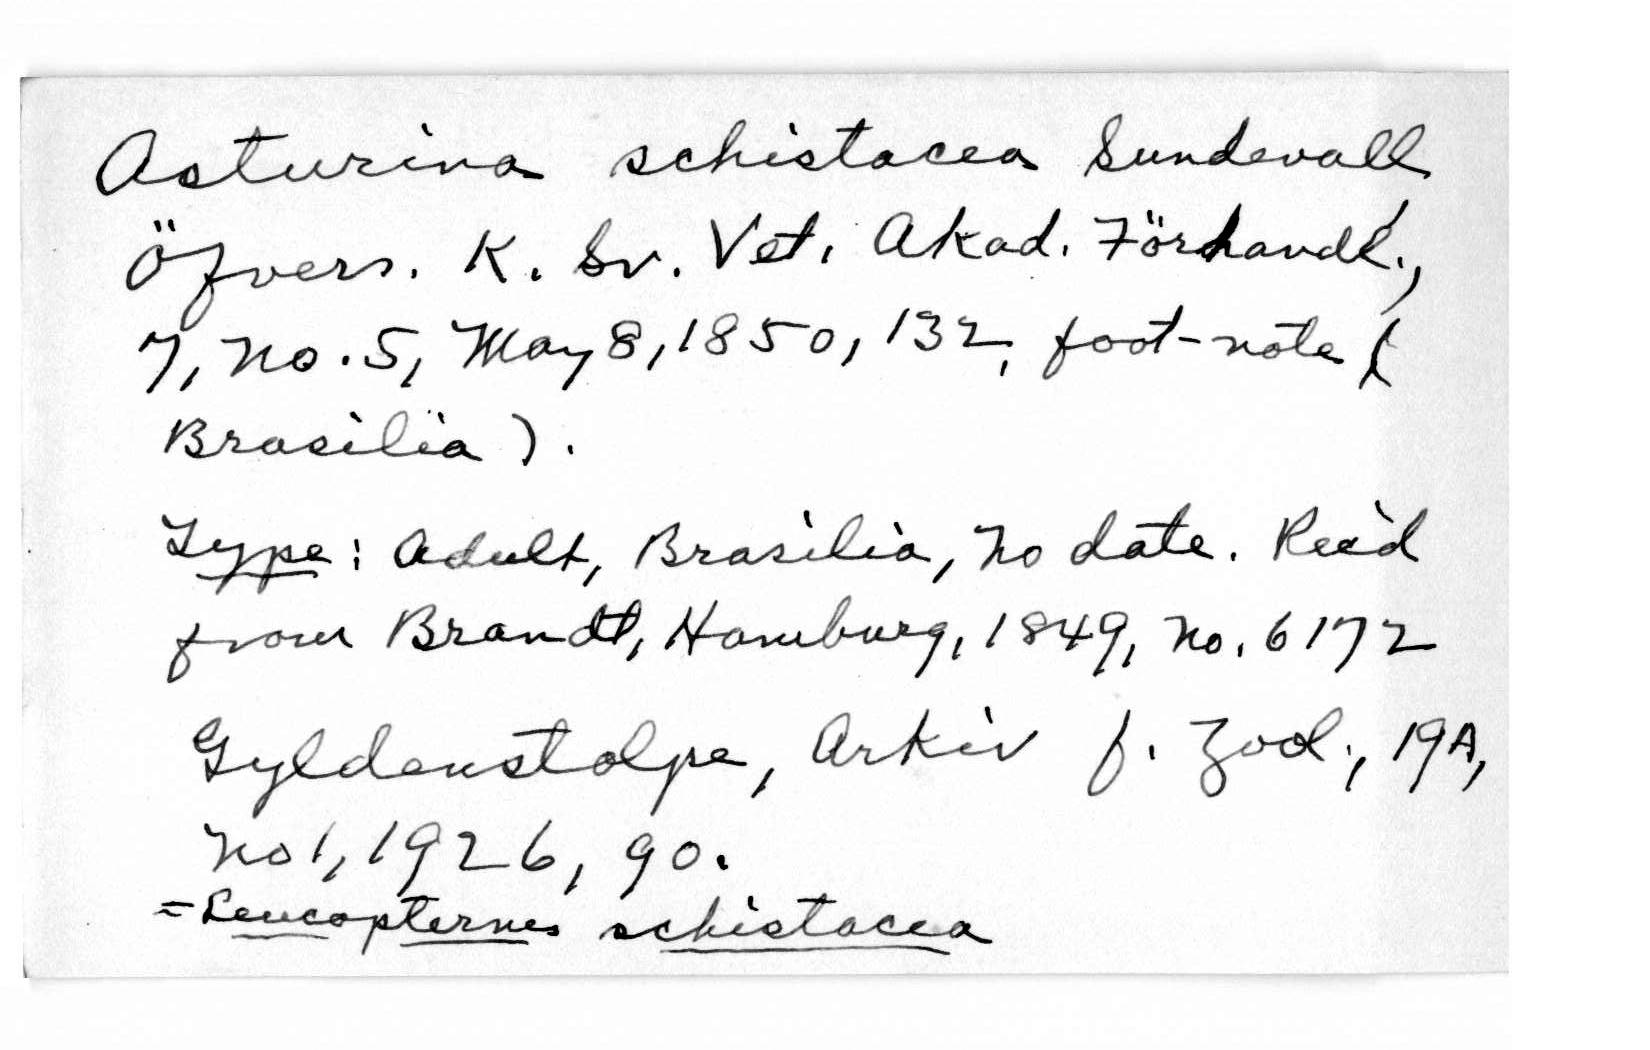 Asturina schistacea Sundevall
Öfvers. K. Sv. Vet. Akad. Förhandl.,
7, No. 5, May 8, 1850, 132, foot-note (
Brasilia).
Type: Adult, Brasilia, no date. Rec'd
from Brandt, Hamburg, 1849, No. 6172
Gyldenstolpe, Arkiv f. Zool., 19A,
No 1, 1926, 90.
= Leucopternes schistacea